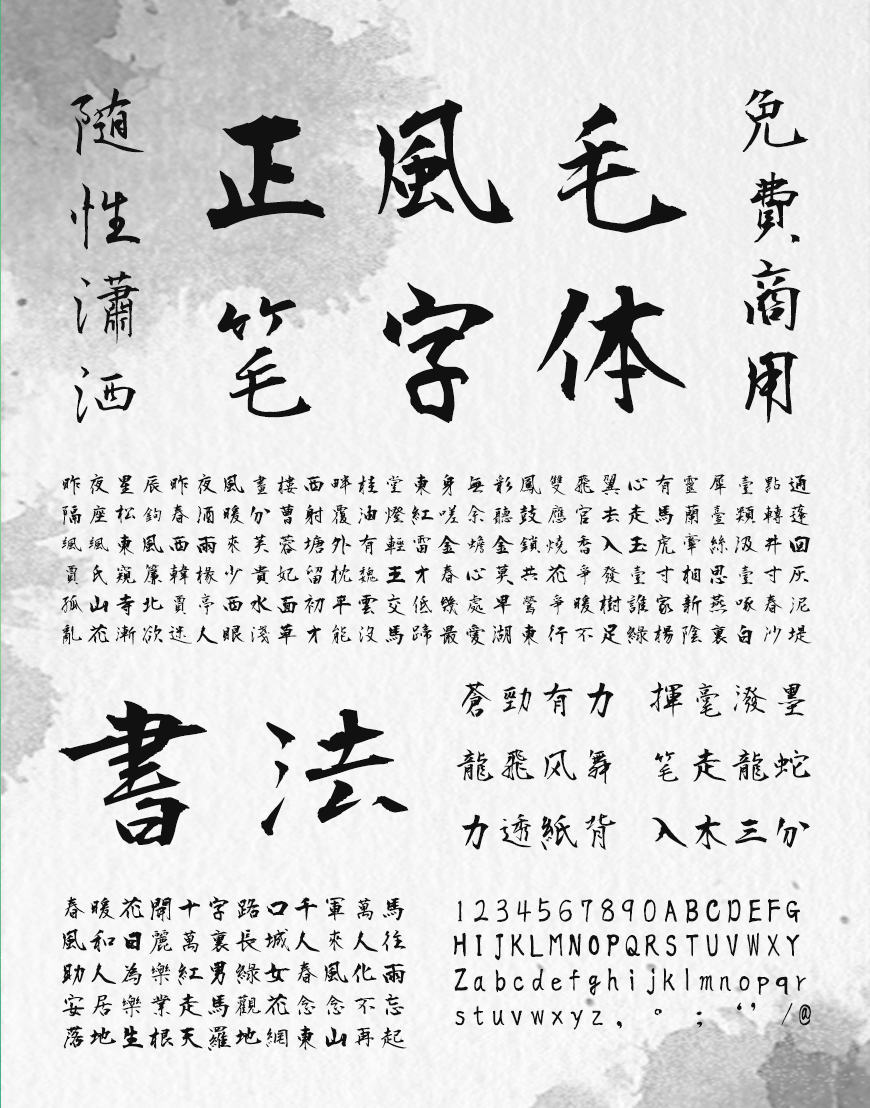 随性瀟洒
正風毛
笔字体
免費商用
昨夜星辰昨夜風畫樓西畔桂堂東身無彩鳳雙飛翼心有靈犀臺點通
隔座松鉤春酒暖分曹射覆油燈紅嗟余聽鼓應官去走馬蘭臺類轉蓬
颯颯東風西雨來芙蓉塘外有輕雷金蟾金鎖燒香入玉虎牽絲汲井回
賈氏窺簾韓椽少貴妃留枕魏王才春心莫共花爭發臺寸相思臺寸灰
孤山寺北賈亭西水面初平雲交低幾處早鶯爭暖樹誰家新燕啄春泥
亂花漸欲迷人眼淺草才能沒馬蹄最愛湖東行不足綠楊陰裏白沙堤
書法
蒼勁有力 揮毫潑墨
龍飛风舞 笔走龍蛇
力透紙背 入木三分
春暖花開十字路口千軍萬馬
風和日麗萬裏長城人來人往
助人為樂紅男綠女春風化雨
安居樂業走馬觀花念念不忘
落地生根天羅地網東山再起
1234567890ABCDEFG
HIJKLMNOPQRSTUVWXY
Zabcdefghijklmnopqr
stuvwxyz，。；‘’/@